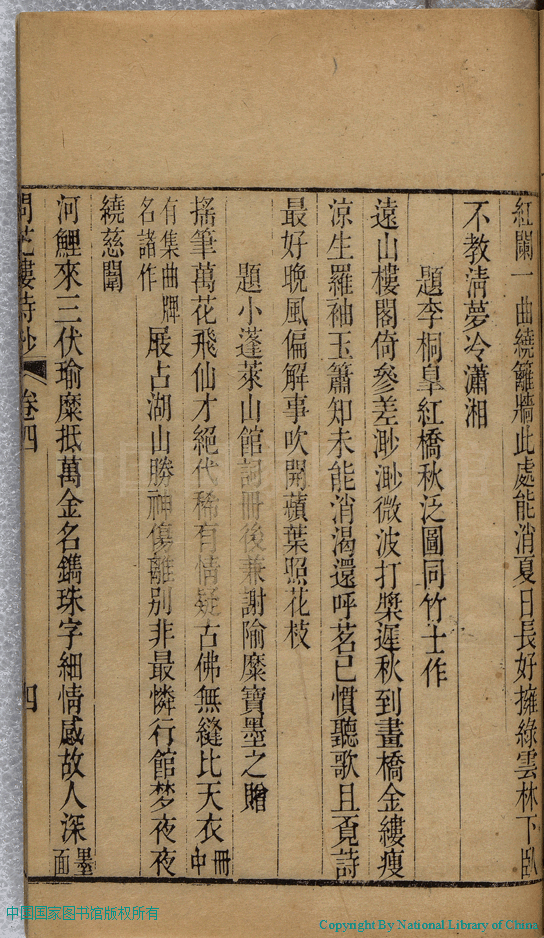 紅闌一曲繞籬牆此處能消夏日長好擁綠雲林下臥
不教清夢冷瀟湘
題李桐臯紅橋秋泛圖同竹士作
遠山樓閣倚參差渺渺微波打槳遲秋到畫橋金縷瘦
涼生羅袖玉簫知未能消渴還呼茗已慣聽歌且覓詩
最好晚風偏解事吹開蘋葉照花枝
題小蓬萊山館詞冊後兼謝隃糜寶墨之贈
搖筆萬花飛仙才絕代稀有情疑古佛無縫比天衣冊中
有集曲牌
名諸作
屐占湖山勝神傷離別非最憐行館梦夜夜
繞慈闈
河鯉來三伏瑜糜抵萬金名鐫珠字細情感故人深墨面
問芝樓詩鈔
卷四
四
中国国家图书馆版权所有
Copyright By National Library of China